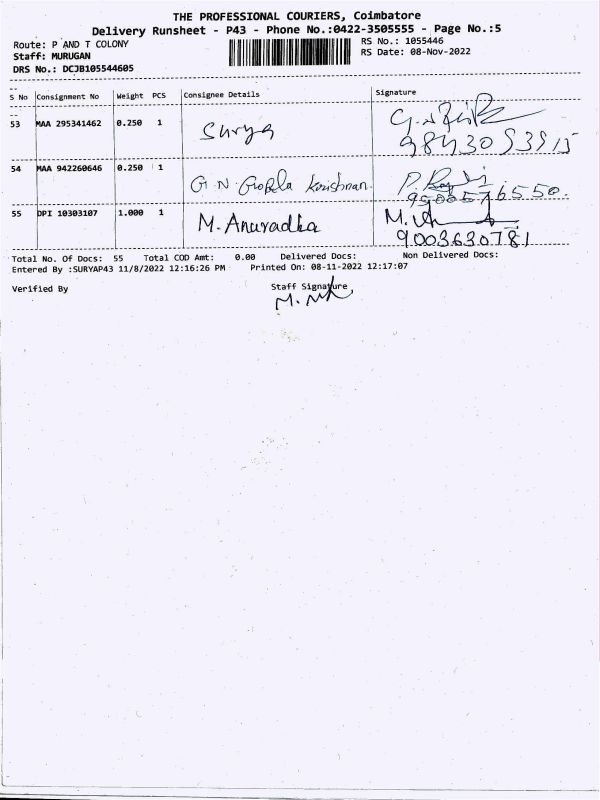 THE PROFESSIONAL COURIERS, Coimbatore
Delivery Runsheet - P43 - Phone No.:0422-3505555 - Page No.:5
Route: P AND T COLONY
RS No.: 1055446
Staff: MURUGAN
RS Date: 08-Nov-2022
DRS No.: DCJB105544605
S No Consignment No Weight PCS Consignee Details Signature
53 MAA 295341462 0.250 1 Surya
54 MAA 942260646 0.250 1 G.N. Gopala Krishnan
55 DPI 10303107 1.000 1 M. Anuradha M.
9003630781
Total No. Of Docs: 55 Total COD Amt: 0.00 Delivered Docs: Non Delivered Docs:
Entered By :SURYAP43 11/8/2022 12:16:26 PM Printed On: 08-11-2022 12:17:07
Verified By Staff Signature